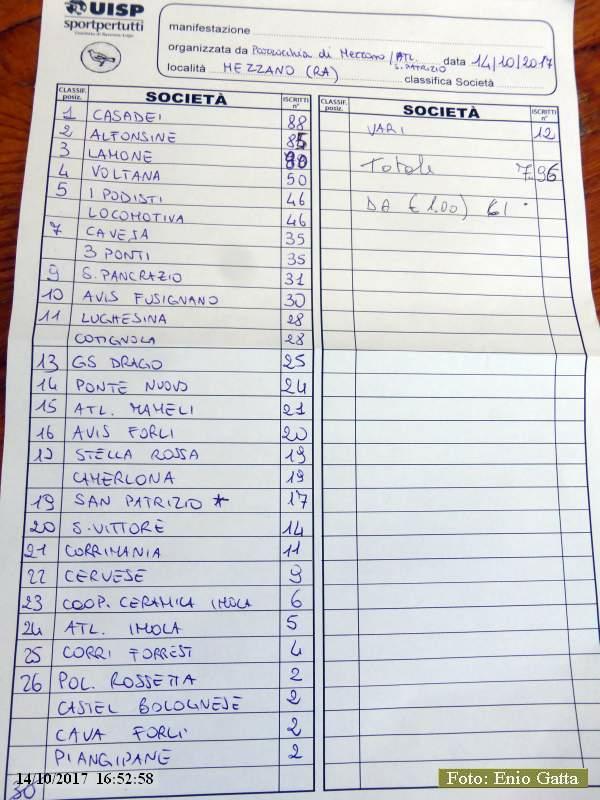 UISP
sportpertutti
manifestazione
organizzata da Parrocchia di Mezzano / ATL. S. PATRIZIO data 14/10/2017
località MEZZANO (RA) classifica Società
CLASSIF. posiz. SOCIETÀ ISCRITTI n°
1 CASADEI 88
2 ALFONSINE 85
3 LAMONE 80
4 VOLTANA 50
5 I PODISTI 46
LOCOMOTIVA 46
7 CAVEJA 35
3 PONTI 35
9 S. PANCRAZIO 31
10 AVIS FUSIGNANO 30
11 LUGHESINA 28
COTIGNOLA 28
13 GS DRAGO 25
14 PONTE NUOVO 24
15 ATL. MAMELI 21
16 AVIS FORLI 20
17 STELLA ROSSA 19
CAMERLONA 19
19 SAN PATRIZIO * 17
20 S. VITTORE 14
21 CORRIMANIA 11
22 CERVESE 9
23 COOP. CERAMICA IMOLA 6
24 ATL. IMOLA 5
25 CORRI FORREST 4
26 POL. ROSSETTA 2
CASTEL BOLOGNESE 2
CAVA FORLI 2
PIANGIPANE 2
30
CLASSIF. posiz. SOCIETÀ ISCRITTI n°
VARI 12
Totale 796
DA (€ 1,00) 61
14/10/2017 16:52:58
Foto: Enio Gatta